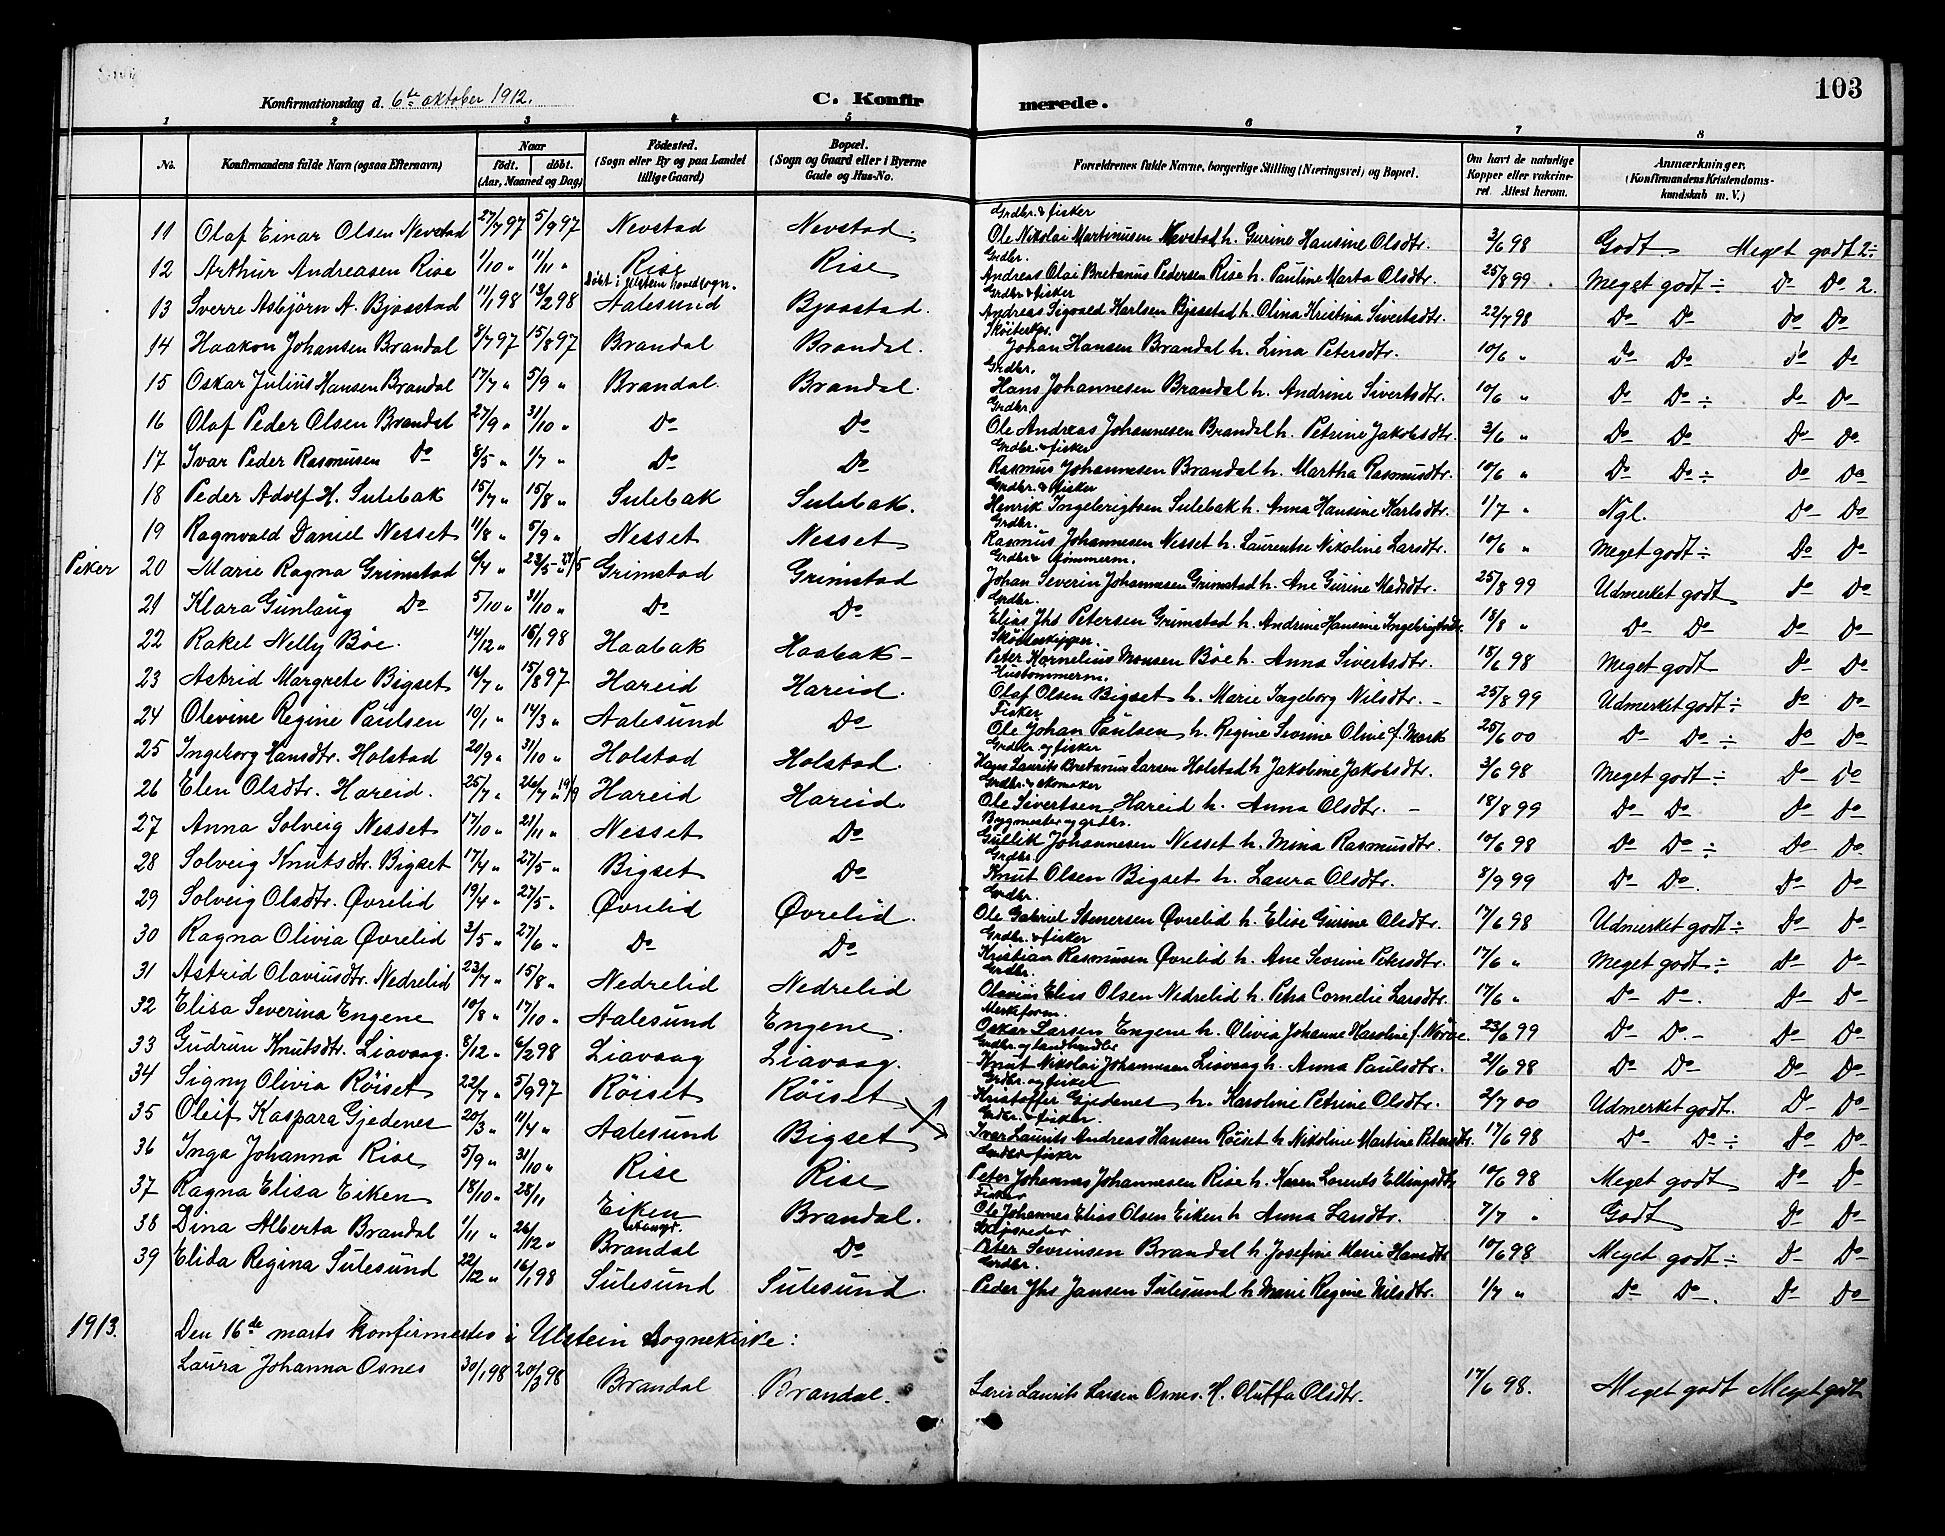 Konfirmationsdag d. 6te oktober 1912. C. Konfirmerede. 103
1 2 3 4 5 6 7 8
No. Konfirmandens fulde Navn (ogsaa Efternavn) Naar født. døbt. (Aar, Maaned og Dag) Fødested. (Sogn eller By og paa Landet tillige Gaard) Bopæl. (Sogn og Gaard eller i Byerne Gade og Hus-No. Forældrenes fulde Navne, borgerlige Stilling (Næringsvei) og Bopæl. Om havt de naturlige Kopper eller vakcineret. Attest herom. Anmærkninger. (Konfirmandens Kristendomskundskab m. V.)
Grdbr. & fisker
11 Olaf Einar Olsen Nevstad 27/7 97 5/9 97 Nevstad Nevstad. Ole Nikolai Martinusen Nevstad h. Gurine Hansine Olsdtr. 3/6 98 Godt. Meget godt 2÷
Grdbr.
12 Arthur Andreasen Rise 1/10 " 11/11 " Rise Rise Andreas Olai Bretanus Pedersen Rise h. Pauline Marta Olsdtr. 25/8 99 Meget godt ÷ Do Do 2.
Døbt i Ulstein hovedsogn. Grdbr & fisker
13 Sverre Asbjørn A. Bjåstad 11/1 98 13/2 98 Aalesund Bjaastad. Andreas Sigvald Karlsen Bjåstad h. Olina Kristina Sivertsdtr. 22/7 98 Do Do Do Do
14 Haakon Johansen Brandal 8/7 97 15/8 97 Brandal Brandal. Johan Hansen Brandal h. Lina Petersdtr. 10/6 " Do Do Do Do
Grdbr.
15 Oskar Julius Hansen Brandal 17/7 " 5/9 " Brandal. Brandal. Hans Johannesen Brandal h. Andrine Sivertsdtr. 10/6 " Do Do ÷ Do Do
Grdbr.
16 Olaf Peder Olsen Brandal 27/9 " 31/10 " Do Do Ole Andreas Johannesen Brandal h. Petrine Jakobsdtr. 3/6 " Do Do Do Do
Grdbr. & fisker
17 Ivar Peder Rasmusen Do 8/5 " 1/7 " Do Do Rasmus Johannesen Brandal h. Martha Rasmusdtr. 10/6 " Do Do ÷ Do Do
Grdbr. & fisker
18 Peder Adolf H. Sulebak 15/7 " 15/8 " Sulebak Sulebak. Henrik Ingebrigtsen Sulebak h. Anna Hansine Karlsdtr. 1/7 " Ngl. Do Do
Grdbr.
19 Ragnvald Daniel Nesset 11/8 " 5/9 " Nesset Nesset Rasmus Johannesen Nesset h. Laurentse Nikoline Larsdtr. 10/6 " Meget godt ÷ Do Do
Grdbr & tømmerm.
Piker 20 Marie Ragna Grimstad 6/4 " 23/5 " Grimstad Grimstad Johan Severin Johannesen Grimstad h. Ane Gurine Madsdtr. 25/8 99 Udmerket godt Do Do
Grdbr.
21 Klara Gunlaug Do 5/10 " 31/10 " Do Do Elias Jhs Petersen Grimstad h. Andrine Hansine Ingebrigtsdtr. 18/8 " Do Do Do Do
Skøiteskipper.
22 Rakel Nelly Bøe. 14/12 " 16/1 98 Haabak Haabak Peter Kornelius Monsen Bøe h. Anna Sivertsdtr. 18/6 98 Meget godt Do Do
Hustømmerm.
23 Astrid Margrete Bigset 16/7 " 15/8 97 Hareid Hareid. Olaf Olsen Bigset h. Marie Ingeborg Nilsdtr. 25/8 99 Udmerket godt ÷ Do Do
Fisker
24 Olevine Regine Paulsen 10/1 " 14/3 " Aalesund Do Ole Johan Paulsen h. Regine Severine Oline f. Mork 25/6 00 Do Do ÷ Do Do
Grdbr. og fisker
25 Ingeborg Hansdtr. Holstad 20/9 " 31/10 " Holstad Holstad. Hans Laurits Bretanus Larsen Holstad h Jakobine Jakobsdtr. 3/6 98 Meget godt ÷ Do Do
Grdbr. & skomaker
26 Elen Olsdtr. Hareid. 25/7 " 26/7 " 19/9 Hareid Hareid. Ole Sivertsen Hareid h. Anna Olsdtr. 18/8 99 Do Do Do Do
Bygmester og grdbr.
27 Anna Solveig Nesset 17/10 " 21/11 " Nesset Do Gullik Johannesen Nesset h. Mina Rasmusdtr. 10/6 98 Do Do ÷ Do Do
Grdbr.
28 Solveig Knutsdtr. Bigset 17/4 " 27/5 " Bigset Do Knut Olsen Bigset h. Laura Olsdtr. 8/9 99 Do Do. Do Do
Grdbr.
29 Solveig Olsdtr. Øvrelid 19/4 " 27/5 " Øvrelid Øvrelid. Ole Gabriel Øvrelid h. Elise Gurine Olsdtr. 17/6 98 Udmerket godt ÷ Do Do
Grdbr. & fisker
30 Ragna Olivia Øvrelid 3/5 " 27/6 " Do Do Kristian Rasmusen Øvrelid h. Ane Severine Petersdtr. 17/6 " Meget godt ÷ Do Do
Grdbr.
31 Astrid Olaviusdtr. Nedrelid 23/7 " 15/8 " Nedrelid Nedrelid Olavius Elias Olsen Nedrelid h. Petra Cornelie Larsdtr. 17/6 " Do Do. Do Do
32 Elisa Severina Engene 10/8 " 17/10 " Aalesund Engene. Oskar Larsen Engene h. Olivia Johanne Karoline f. 23/6 99 Do Do. Do Do
Grdbr. og landhandler
33 Gudrun Knutsdtr. Liavaag. 8/12 " 6/2 98 Liavaag Liavaag. Knut Nikolai Johannesen Liavaag h. Anna Paulsdtr. 2/6 98 Do Do Do Do
Grdbr. og fisker
34 Signy Olivia Røiset 22/7 " 5/9 97 Røiset Røiset Kristoffer Gjedenes h. Karoline Petrine Olsdtr. 2/7 00 Udmerket godt. Do Do
Grdbr. & fisker.
35 Oleif Kaspara Gjedenes 20/3 " 11/4 " Aalesund Bigset Ivar Laurits Andreas Hansen Røiset h Nikoline Martine Petersdtr. 17/6 98 Do Do ÷ Do Do
36 Inga Johanna Rise 5/9 " 31/10 " Rise Rise Peter Johannes Johannesen Rise h. Karen Lorents Ellingsdtr. 10/6 98 Meget godt Do Do
Fisker
37 Ragna Elisa Eiken 18/10 " 28/11 Eiken Brandal. Ole Johannes Elias Olsen Eiken h Anna Larsdtr. 7/7 " Godt Do Do
Skibsreder
38 Dina Alberta Brandal 1/11 " 26/12 " Brandal Do Peter Severinsen Brandal h. Josefine Marie Hansdtr 10/6 98 Meget godt ÷ Do Do
Grdbr.
39 Elida Regina Sulesund 22/12 " 16/1 98 Sulesund Sulesund. Peder Jhs Jansen Sulesund h Marie Regine Nilsdtr. 1/7 " Do Do. Do Do
1913. Den 16de marts konfirmertes i Ulstein Sognekirke:
Laura Johanna Osnes 30/1 98 20/3 98 Brandal Brandal. Laurits Larsen Osnes. H. Oluffa Olsdtr. 17/6 98. Meget godt Meget godt